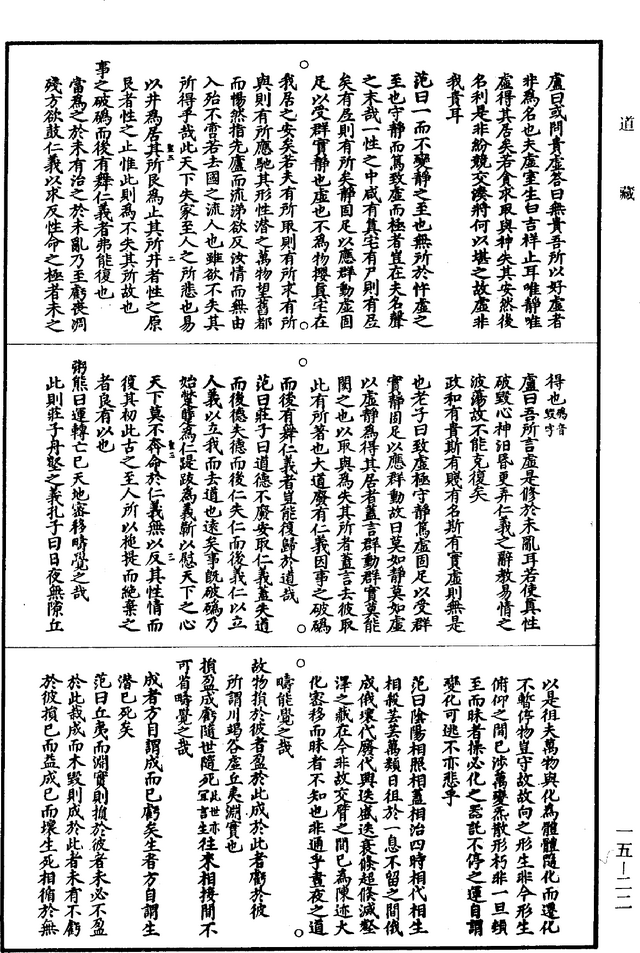 盧曰或問貴虛答曰無貴吾所以好虛者
非為名也夫虛室生白吉祥止耳唯靜唯
虛得其居矣若貪求取與神失其安然後
名利是非紛競交湊將何以堪之故虛非
我貴耳
范曰一而不變靜之至也無所於忤虛之
至也守靜而篤致虛而極者豈在夫名聲
之末哉一性之中咸有真宅有尸則有㞐
矣有㞐則有所矣靜固足以應群動虛固
足以受群實靜也虛也不為物攖真宅在
我居之安矣若夫有所取則有所求有所
與則有所應馳其形性潛之萬物望舊都
而悵然指先廬而流涕欲反汝情而無由
入殆不啻若去國之流人也雖欲不失其
所得乎哉此天下失家至人之所悲也易
以井為居其所艮為止其所井者性之原
艮者性之止惟此則為不失其所故也
事之破䃣而後有舞仁義者弗能復也
當為之於未有治之於未亂乃至虧喪凋
殘方欲鼓仁義以求反性命之極者未之
得也䃣音毀字
盧曰吾所言虛是修於未亂耳若使真性
破毀心神汨昏更弄仁義之辭教易情之
波蕩故不能克復矣
政和有貴斯有賤有名斯有實虛則無是
也老子曰致虛極守靜篤虛固足以受群
實靜固足以應群動故曰莫如靜莫如虛
以虛靜為得其居者蓋言群動群實莫能
閡之也以取與為失其所者蓋言去彼取
此有所著也大道廢有仁義因事之破䃣
而後有舞仁義者豈能復歸於道哉
范曰莊子曰道德不廢安取仁義蓋失道
而後德失德而後仁失仁而後義仁以立
人義以立我而去道也遠矣事既破䃣乃
始蹩躠為仁踶跂為義新以慰天下之心
天下莫不奔命於仁義無以反其性情而
復其初此古之至人所以搥提而絕棄之
者良有以也
粥熊曰運轉亡已天地密移疇覺之哉
此則莊子舟壑之義孔子曰日夜無隙丘
以是徂夫萬物與化為體體隨化而遷化
不暫停物豈守故故向之形生非今形生
俯仰之間已涉萬變炁散形朽非一旦頓
至而昧者操必化之器託不停之運自謂
變化可逃不亦悲乎
范曰陰陽相照相蓋相治四時相代相生
相殺芸芸萬類日徂於一息不留之間俄
成俄壞代廢代興迭盛迭衰倏超倏滅壑
澤之藏在今非故交臂之間已為陳迹大
化密移而昧者不知也非通乎晝夜之道
疇能覺之哉
故物損於彼者盈於此成於此者虧於彼
所謂川竭谷虛丘夷淵實也
損盈成虧隨世隨死此世亦宜言生往來相接間不
可省疇覺之哉
成者方自謂成而已虧矣生者方自謂生
潛已死矣
范曰丘夷而淵實則損於彼者未必不盈
於此裁成而木毀則成於此者未有不虧
於彼損已而益成已而壞生死相循於無
道藏
一五—二二